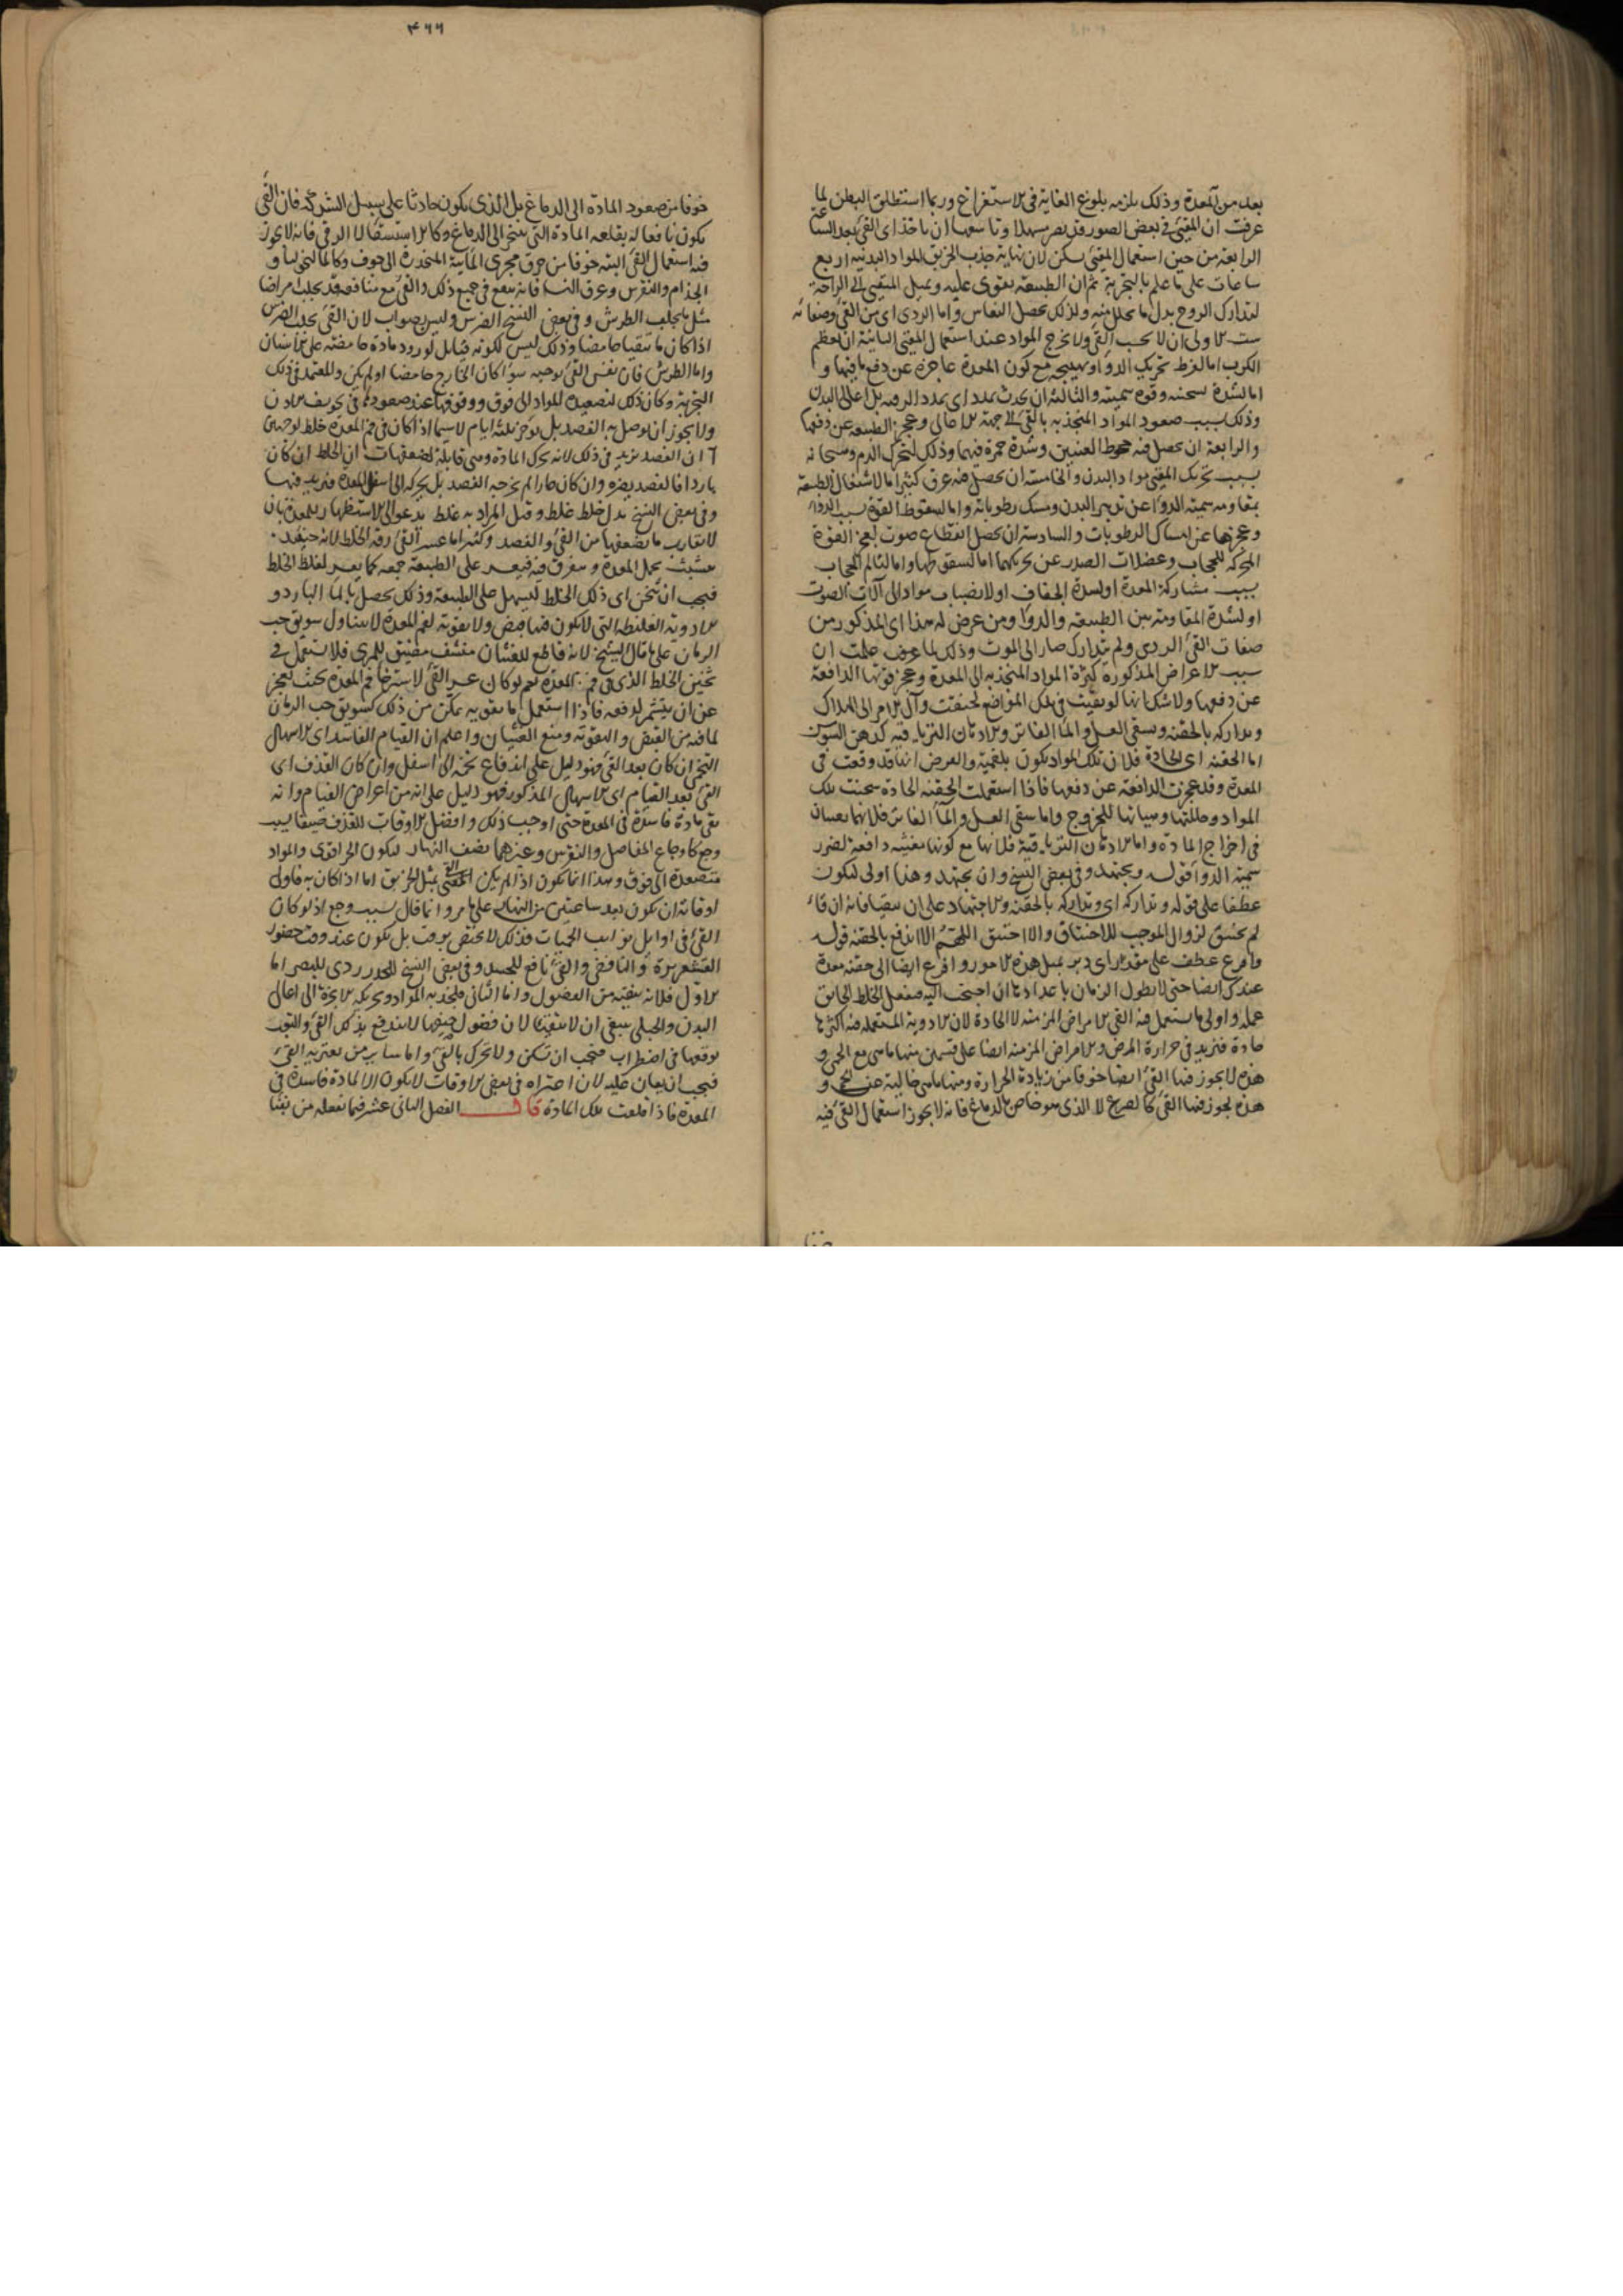 بعد من المعدة وذلك يلزمه بلوغ الغاية في الاستفراغ وربما استطلق البطن لما
عرفت ان المقيئ في بعض الصور قد يصير مسهلا وتاسعها ان ياخذ اى القئ بعد الساعة
الرابعة من حين استعمال المقيئ يسكن لان نهاية جذب الخربق للمواد البدنية اربع
ساعات على ما علم بالتجربة ثم ان الطبيعة يقوى عليه ويميل المتقيئ الى الراحة
لتدارك الروح بدل ما تحلل منه ولذلك يحصل النعاس واما الردى اى من القئ وصفاته
ست الاولى ان لا يجب القئ ولا يخرج المواد عند استعمال المقيئ الثانية ان يعظم
الكرب اما لفرط تحريك الدواء وتهييجه مع كون المعدة عاجزة عن دفع ما فيها و
اما لشدة سخنه وقوة سميته والثالثة ان يحدث تمدد اى تمدد الرقبة بل اعالى البدن
وذلك بسبب صعود المواد المنجذبه بالقئ الى جهة الاعالى وعجز الطبيعه عن دفعها
والرابعة ان يحصل فيه جحوظ العينين وشدة حمرة فيهما وذلك لتحرك الدم وسخانه
بسبب تحريك المقيئ مواد البدن والخامسة ان يحصل منه عرق كثير اما لاشتغال الطبيعة
بمقاومه سمية الدواء عن تدبير البدن ومسك رطوباته واما لسقوط القوة بسبب الدواء
وعجزها عن امساك الرطوبات والسادسة ان يحصل انقطاع صوت لعجز القوة
المحركة للحجاب وعضلات الصدر عن تحريكهما اما لسقوطها واما لتالم الحجاب
بسبب مشاركة المعدة او لشدة الجفاف او لانصباب مواد الى آلات الصوت
او لشدة المقاومة بين الطبيعه والدواء ومن عرض له هذا اى المذكور من
صفات القئ الردى ولم يتدارك صار الى الموت وذلك لما عرف علمت ان
سبب الاعراض المذكورة كثرة المواد المنجذبه الى المعدة وعجز قوتها الدافعة
عن دفعها ولا شك انها لو بقيت في تلك المواضع لخنقت وآل الامر الى الهلاك
وتداركه بالحقنه وسقى العسل والماء الفاتر والادهان الترياقيه كدهن السوسن
اما الحقنه اى الحادة فلان تلك المواد تكون بلغمية والغرض انها قد وقعت في
المعدة وقد عجزت الدافعة عن دفعها فاذا استعملت الحقنه الحادة سخنت تلك
المواد وحللتها وهياتها للخروج واما سقى العسل والماء الفاتر فلانهما يعينان
في اخراج المادة واما الادهان الترياقية فلانها مع كونها مغثيه دافعة لضرر
سمية الدواء قوله ويجتهد وفي بعض النسخ وان يجتهد وهذا اولى ليكون
عطفا على قوله وتداركه اى وتداركه بالحقنه والاجتهاد على ان يتقيا فانه ان قاء
لم يختنق لزوال الموجب للاختناق والا اختنق اللهم الا ان يدفع بالحقنه قوله
وافرغ عطف على مقدر اى دبر بمثل هذه الامور وافرغ ايضا الى حقنه معدة
عندك ايضا حتى لا يطول الزمان باعدادها ان احتجت اليه فيفعل الخلط الخانق
عمله واولى ما يستعمل فيه القئ الامراض المزمنه لا الحادة لان الادوية المستعمله فيه اكثرها
حادة فتزيد في حرارة المرض والامراض المزمنه ايضا على قسمين منها ما هى مع الحمى و
هذه لا يجوز فيها القئ ايضا خوفا من زيادة الحرارة ومنها ما هى خالية عن الحمى و
هذه يجوز فيها القئ كالصرع لا الذى هو خاص بالدماغ فانه لا يجوز استعمال القئ فيه
٤٦٦
خوفا من صعود المادة الى الدماغ بل الذى يكون حادثا على سبيل الشركة فان القئ
يكون نافعا له بقلعه المادة التى تبخر الى الدماغ وكالاستسقاء لا الزقى فانه لا يجوز
فيه استعمال القئ البته خوفا من خرق مجرى المائية المنحدرة الى الجوف وكالمالنخوليا و
الجذام والنقرس وعرق النسا فانه ينفع في جميع ذلك والقئ مع منافعه قد يجلب امراضا
مثل ما يجلب الطرش وفي بعض النسخ الضرس وليس بصواب لان القئ يجلب الضرس
اذا كان ما يتقيا حامضا وذلك ليس لكونه قيئا بل لورود مادة حامضه على الاسنان
واما الطرش فان نفس القئ يوجبه سواء كان الخارج حامضا او لم يكن والمعتمد في ذلك
التجربة وكان ذلك لتصعيده المواد الى فوق ووقوفها عند صعودها في تجويف الاذن
ولا يجوز ان يوصل به الفصد بل يوخر ثلثة ايام لاسيما اذا كان في فم المعدة خلط لوجهين
آ ان الفصد يزيد في ذلك لانه يحرك المادة وهى قابلة لضعفها ب ان الخلط ان كان
باردا فالفصد يضره وان كان حارا لم يخرجه الفصد بل يحركه الى اسفل المعدة فيزيد فيها
وفي بعض النسخ بدل خلط غلط وقيل المراد به غلط يدعو الى الاستظهار للمعدة بان
لا يقارب ما يضعفها من القئ والفصد وكثيرا ما عسر القئ رقه الخلط لانه حينئذ
يتشبث بخمل المعدة ويتفرق فيه فيعسر على الطبيعة جمعه كما يعسر لغلظ الخلط
فيجب ان يثخن اى ذلك الخلط ليسهل على الطبيعة وذلك يحصل بالماء البارد و
الادوية الغليظة التى لا يكون فيها قبض ولا تقوية لفم المعدة لا بتناول سويق حب
الرمان على ما قال الشيخ لانه قاطع للغثيان منشف مضيق للمرى فلا يستعمل في
تثخين الخلط الذى في فم المعدة نعم لو كان عسر القئ لاسترخاء فم المعدة بحيث يعجز
عن ان يتشمر لدفعه فاذا استعمل ما يقويه تمكن من ذلك كسويق حب الرمان
لما فيه من القبض والتقوية ومنع الغثيان واعلم ان القيام الفاسد اى الاسهال
التخمى ان كان بعد القئ فهو دليل على اندفاع تخمه الى اسفل وان كان القذف اى
القئ بعد القيام اى الاسهال المذكور فهو دليل على انه من اعراض القيام وانه
بقى مادة فاسدة في المعدة حتى اوجب ذلك وافضل الاوقات للقذف صيفا بسبب
وجع كاوجاع المفاصل والنقرس وغيرهما نصف النهار ليكون الحر اقوى والمواد
متصعدة الى فوق وهذا انما يكون اذا لم يكن المقيئ بمثل الخربق اما اذا كان به فاولى
اوقاته ان يكون بعد ساعتين من النهار على ما مر وانما قال بسبب وجع اذ لو كان
القئ في اوايل نوايب الحميات فذلك لا يختص بوقت بل يكون عند وقت حضور
القشعريرة والنافض والقئ نافع للجسد وفي بعض النسخ للخدر ردى للبصر اما
الاول فلانه ينقيه من الفضول واما الثانى فلجذبه المواد وتحريكه الابخرة الى اعالى
البدن والحبلى ينبغى ان لا تتقيا لان فضول حيضها لا تندفع بذلك القئ والتعب
يوقعها في اضطراب فيجب ان تسكن ولا تحرك بالقئ واما سائر من يعتريه القئ
فيجب ان يعان عليه لان اعتراه في بعض الاوقات لا يكون الا لمادة فاسدة في
المعدة فاذا قلعت تلك المادة قال الفصل الثانى عشر فيما يفعله من تقيا